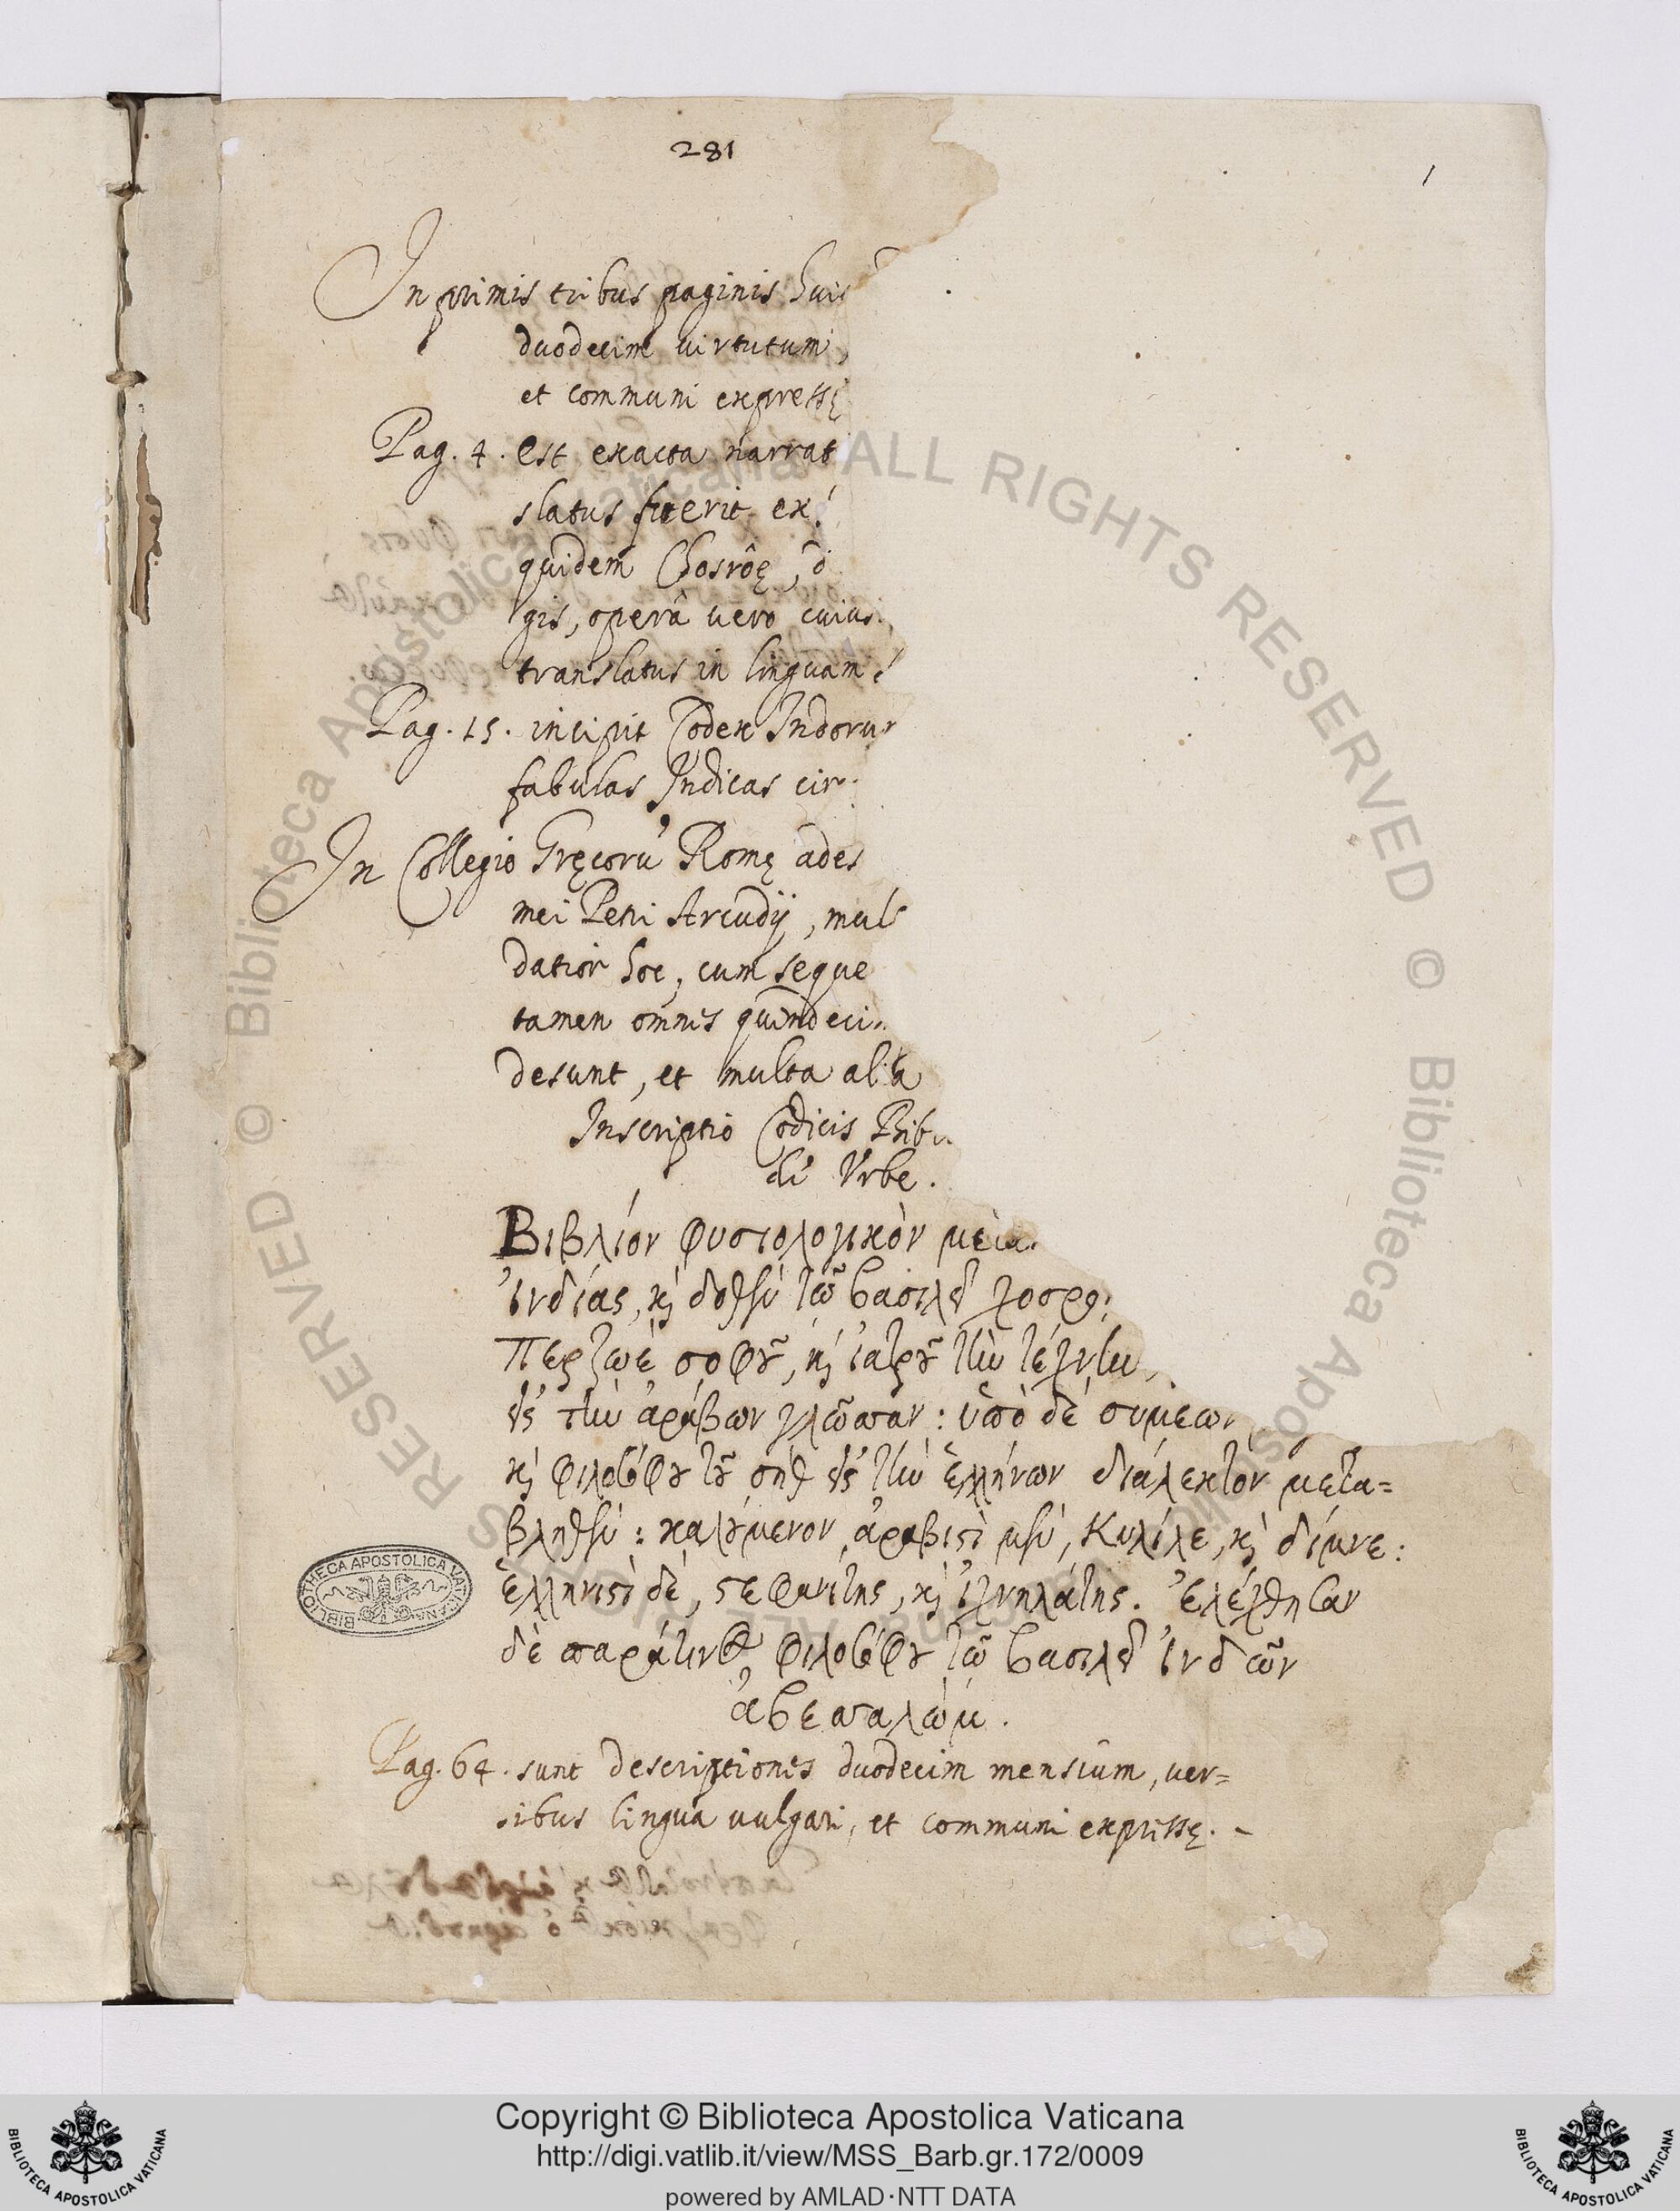 281
1
In primis tribus paginis huis
duodecim virtutum,
et communi expressę
Pag. 4. est exacta narrat
slatus fuerit ex
quidem Chosrôę, d
gis, operâ vero cuius
translatus in linguam
Pag. 15. incipit Codex Indorum
fabulas Indicas cir
In Collegio Gręcorũ Romę ades
mei Petri Arcudij, mul
datior hoc, cum seque
tamen omnes quindeci
desunt, et multa alia
Inscriptio Codicis Bib
di Vrbe.
Βιβλίον φυσιολογικὸν μετα
ἰνδίας, κὶ δοθὲν τῷ βασιλεῖ χοσρό
περζωὲ σοφοῦ, κὶ ἰατροῦ τὴν τέχνην
εἰς τὴν ἀράβων γλῶσσαν: ὑπὸ δὲ συμεὼν
κὶ φιλοσόφου τοῦ σὴθ εἰς τὴν ἑλλήνων διάλεκτον μετα=
βληθὲν: καλούμενον ἀραβιστὶ μὲν, Κυλίλε, κὶ δίμνε:
ἑλληνιστὶ δὲ, στεφανίτης, κὶ ἰχνηλάτης. ἐλέχθησαν
δὲ παράτινος φιλοσόφου τῷ βασιλεῖ ἰνδῶν
ἀβεσαλὼμ.
Pag. 64. sunt descriptiones duodecim mensium, ver=
sibus lingua vulgari, et communi expressę.
BIBLIOTHECA APOSTOLICA VATICANA
© Biblioteca Apostolica Vaticana ALL RIGHTS RESERVED
© Biblioteca Apostolica Vaticana ALL RIGHTS RESERVED
Copyright © Biblioteca Apostolica Vaticana
http://digi.vatlib.it/view/MSS_Barb.gr.172/0009
powered by AMLAD·NTT DATA
BIBLIOTECA APOSTOLICA VATICANA
BIBLIOTECA APOSTOLICA VATICANA